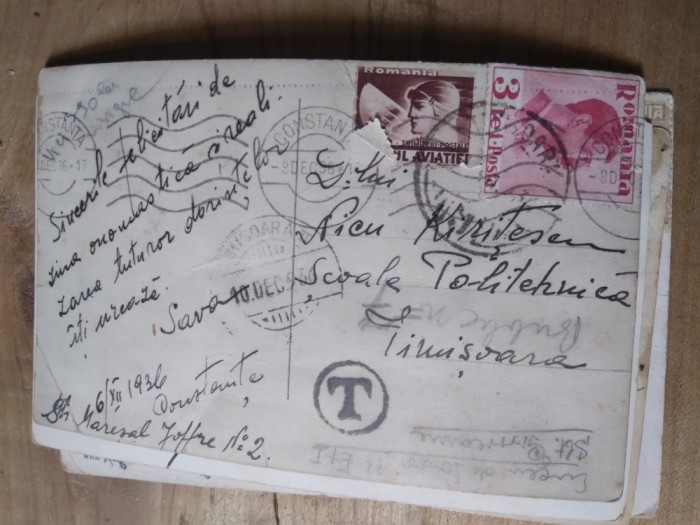 Sincerile felicitări de
ziua onomastică și reali-
zarea tuturor dorințelor
îți urează.
Sava
6/XII 1936
Constanța
Str. Mareșal Joffre No 2.
ROMANIA
TIMBRUL POSTAL
UL AVIAȚIEI
3
Lei·Posta
Romania
CONSTANTA
DEC. 36-17
CONSTAN
-8DEC 36
10.DEC.936
CON
8D
D-lui
Nicu Kirițescu
Școala Politehnică
Timișoara
T